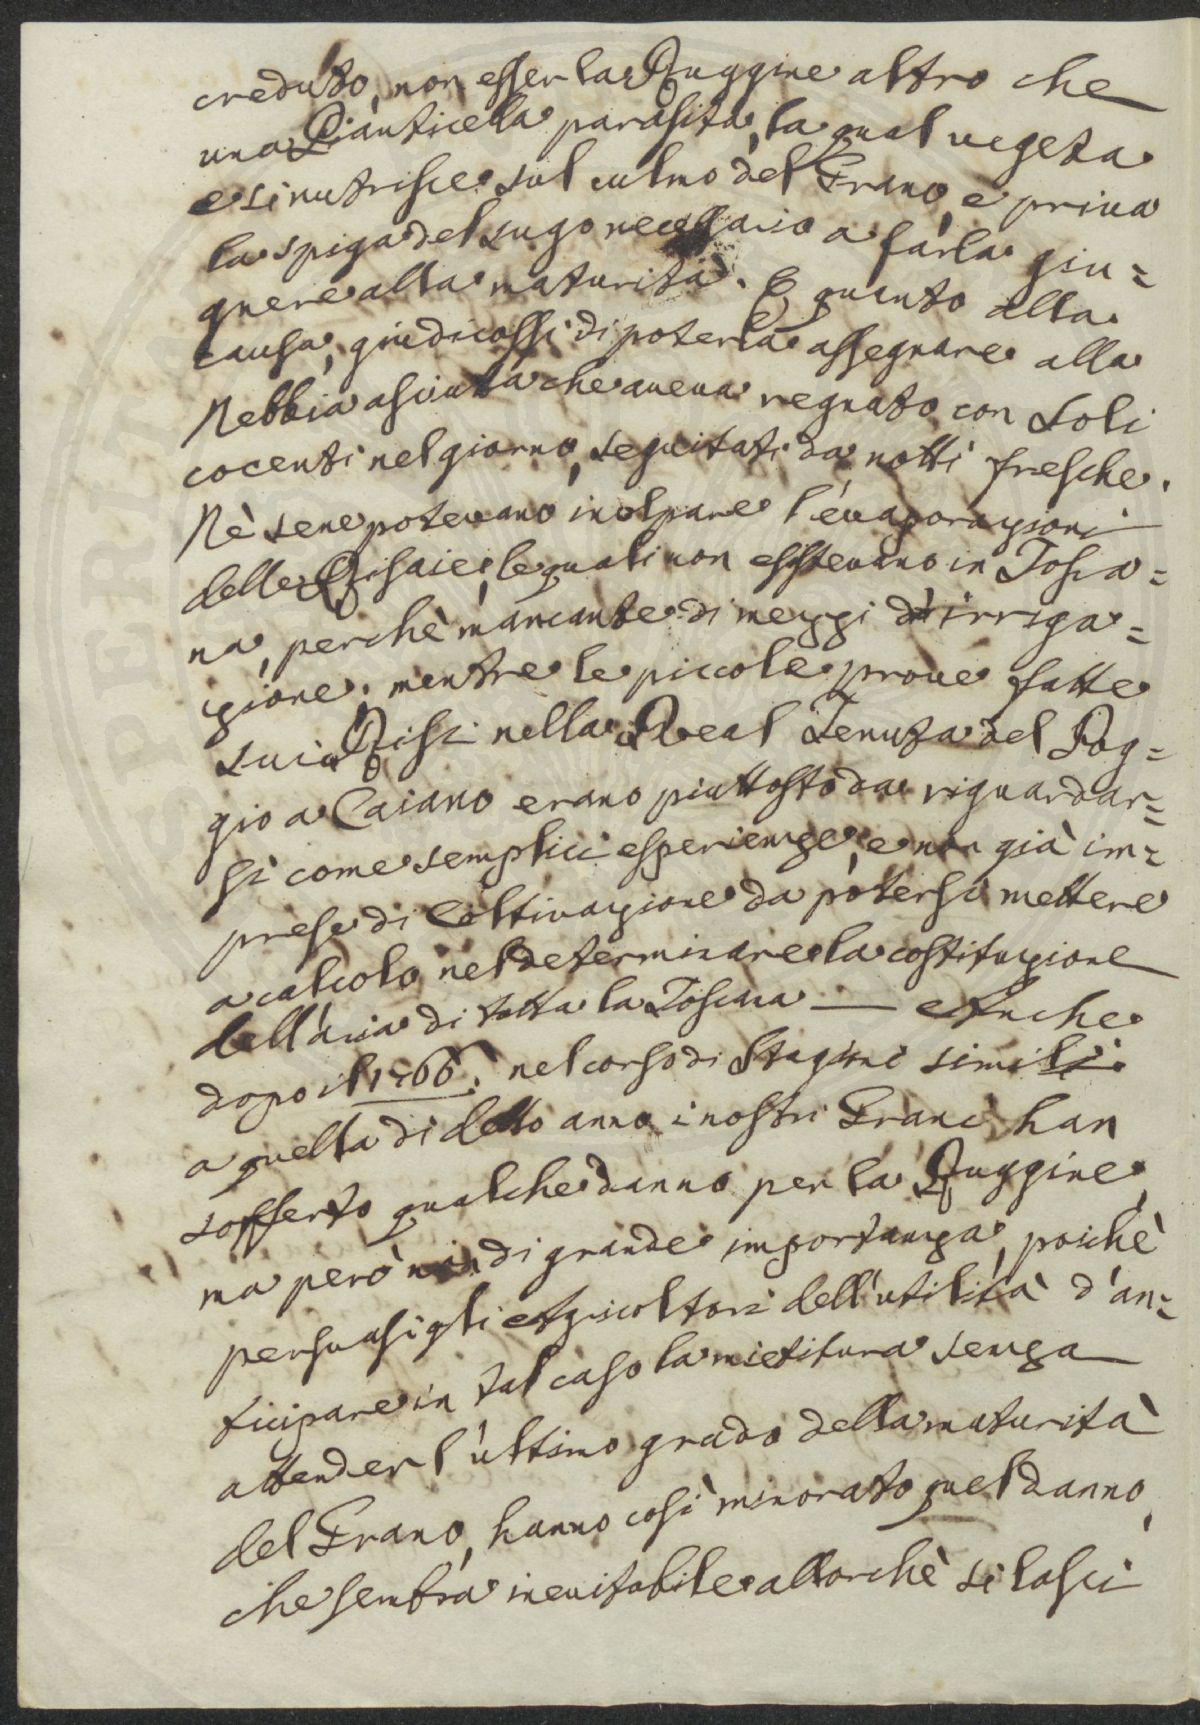 creduto, non esser la Ruggine altro che
una Pianticella parasita, la qual vegeta
e si nutrisce sul culmo del Grano, e priva
la spiga del sugo necessario a farla giu=
gnere alla maturità. E quanto alla
causa, giudicossi di poterla assegnare alla
Nebbia asciutta che aveva regnato con Soli
cocenti nel giorno, seguitati da notti fresche.
Nè se ne potevano incolpare l'evaporazioni
delle Risaie, le quali non esistevano in Tosca=
na, perchè mancante di mezzi d'irriga=
zione; mentre le piccole prove fatte
sui Risi nella Real Tenuta del Pog=
gio a Caiano erano piuttosto da riguardar=
si come semplici esperienze, e non già im=
prese di Coltivazione da potersi mettere
a calcolo nel determinare la costituzione
dell'aria di tutta la Toscana — Anche
dopo il 1766. nel corso di Stagioni simili
a quella di detto anno i nostri Grani han
sofferto qualche danno per la Ruggine,
ma però non di grande importanza, poichè
persuasi gli Agricoltori dell'utilità d'an=
ticipare in tal caso la mietitura senza
attender l'ultimo grado della maturità
del Grano, hanno così minorato quel danno,
che sembra inevitabile allorchè si lasci